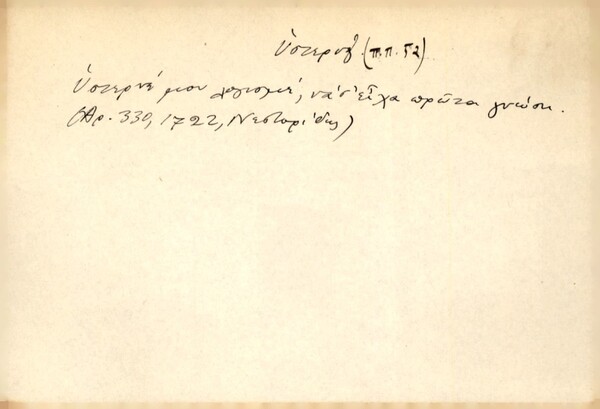 Ὑστερνὸς (π.π. 52)
Ὑστερνέ μου λογισμέ, νά σ' εἶχα πρῶτα γνώση.
(Ἀρ. 330, 1722, Νεστορίδης)